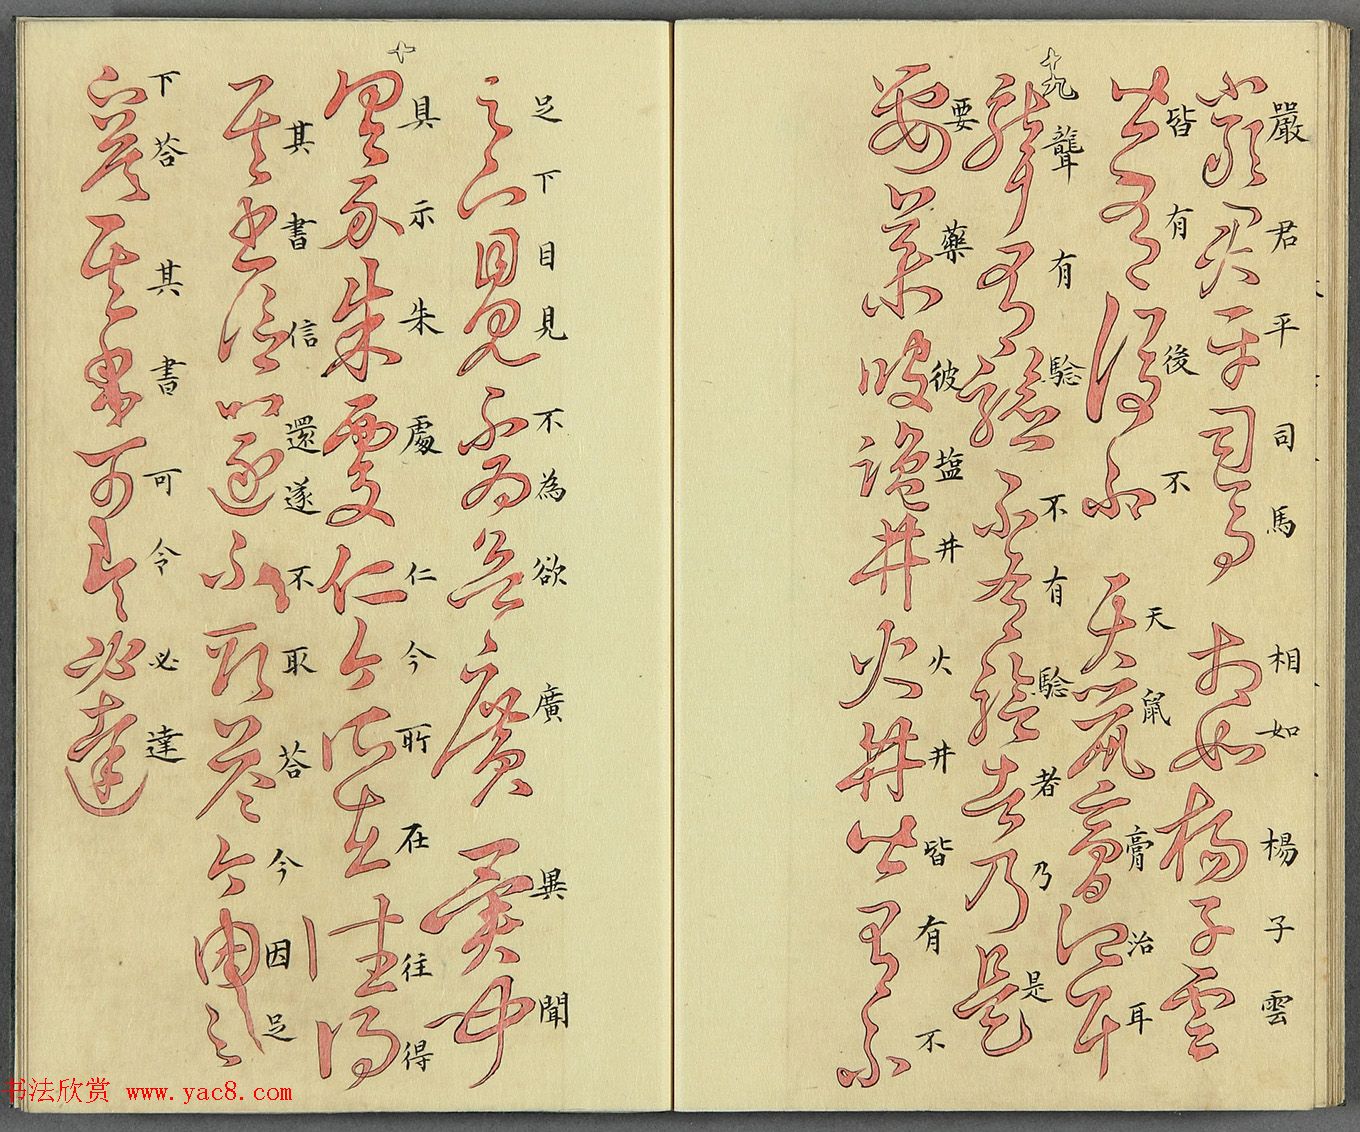 嚴君平司馬相如楊子雲
皆有後不天鼠膏治耳
十九
聾有驗不有驗者乃是
要藥彼塩井火井皆有不
足下目見不為欲廣異聞
十
具示朱處仁今所在往得
其書信還遂不取荅今因足
下荅其書可令必達
书法欣赏 www.yac8.com